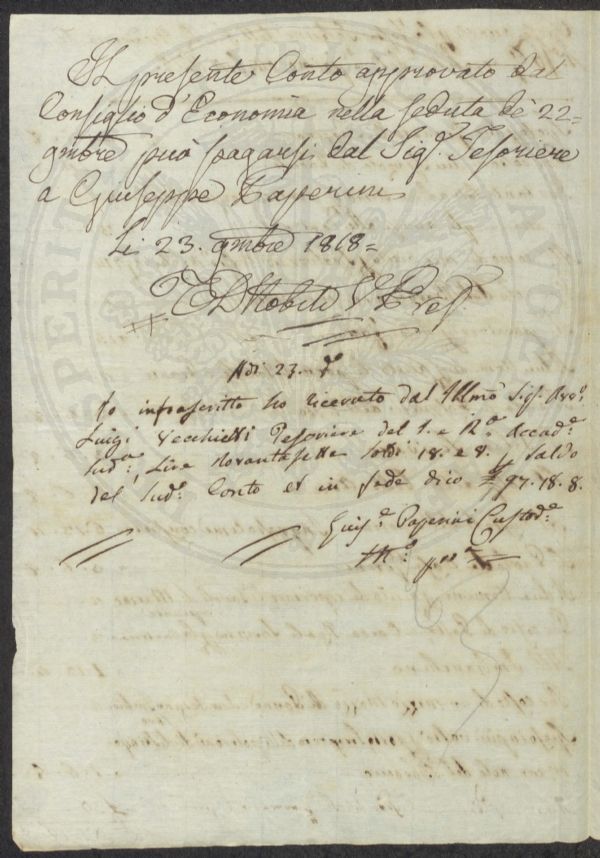 Il presente Conto approvato dal
Consiglio d'Economia nella seduta de' 22=
gmbre può pagarsi dal Sigr. Tesoriere
a Giuseppe Paperini
Li 23. gmbre 1818=
Nobili V. Pres.
Adì 23. do
Io infrascritto ho ricevuto dal Illmo Sigr. Avvo.
Luigi Vecchietti Tesoriere del I. e Ra. Accada.
Suda, Lire Novantasette soldi 18. e 8. p Saldo
del Sudo. Conto et in fede dico £ 97. 18. 8.
Guise. Paperini Custode.
Mo. ppa